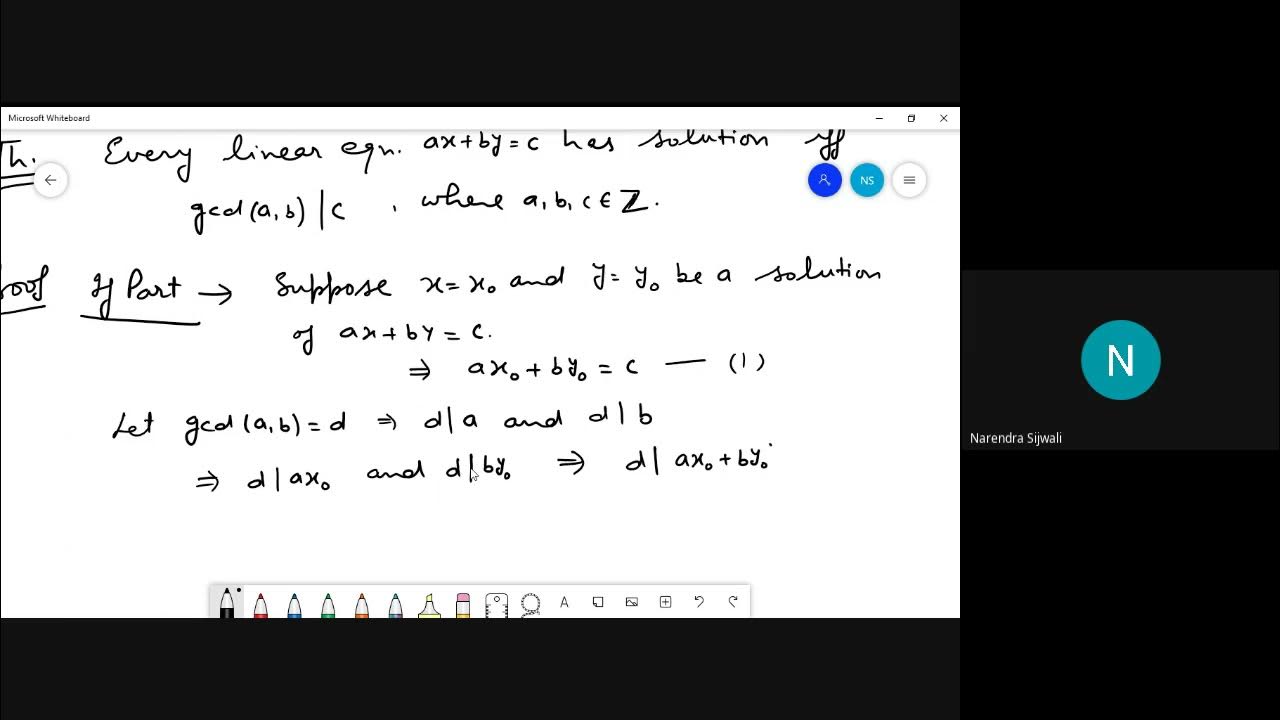 Microsoft Whiteboard
Th. Every linear eqn. ax+by=c has solution iff
NS
gcd(a,b)|c , where a,b,c ∈ ℤ.
roof If Part → Suppose x=x₀ and y=y₀ be a solution
of ax+by=c.
⇒ ax₀+by₀=c — (1)
Let gcd(a,b)=d ⇒ d|a and d|b
⇒ d|ax₀ and d|by₀ ⇒ d|ax₀+by₀
A
N
Narendra Sijwali